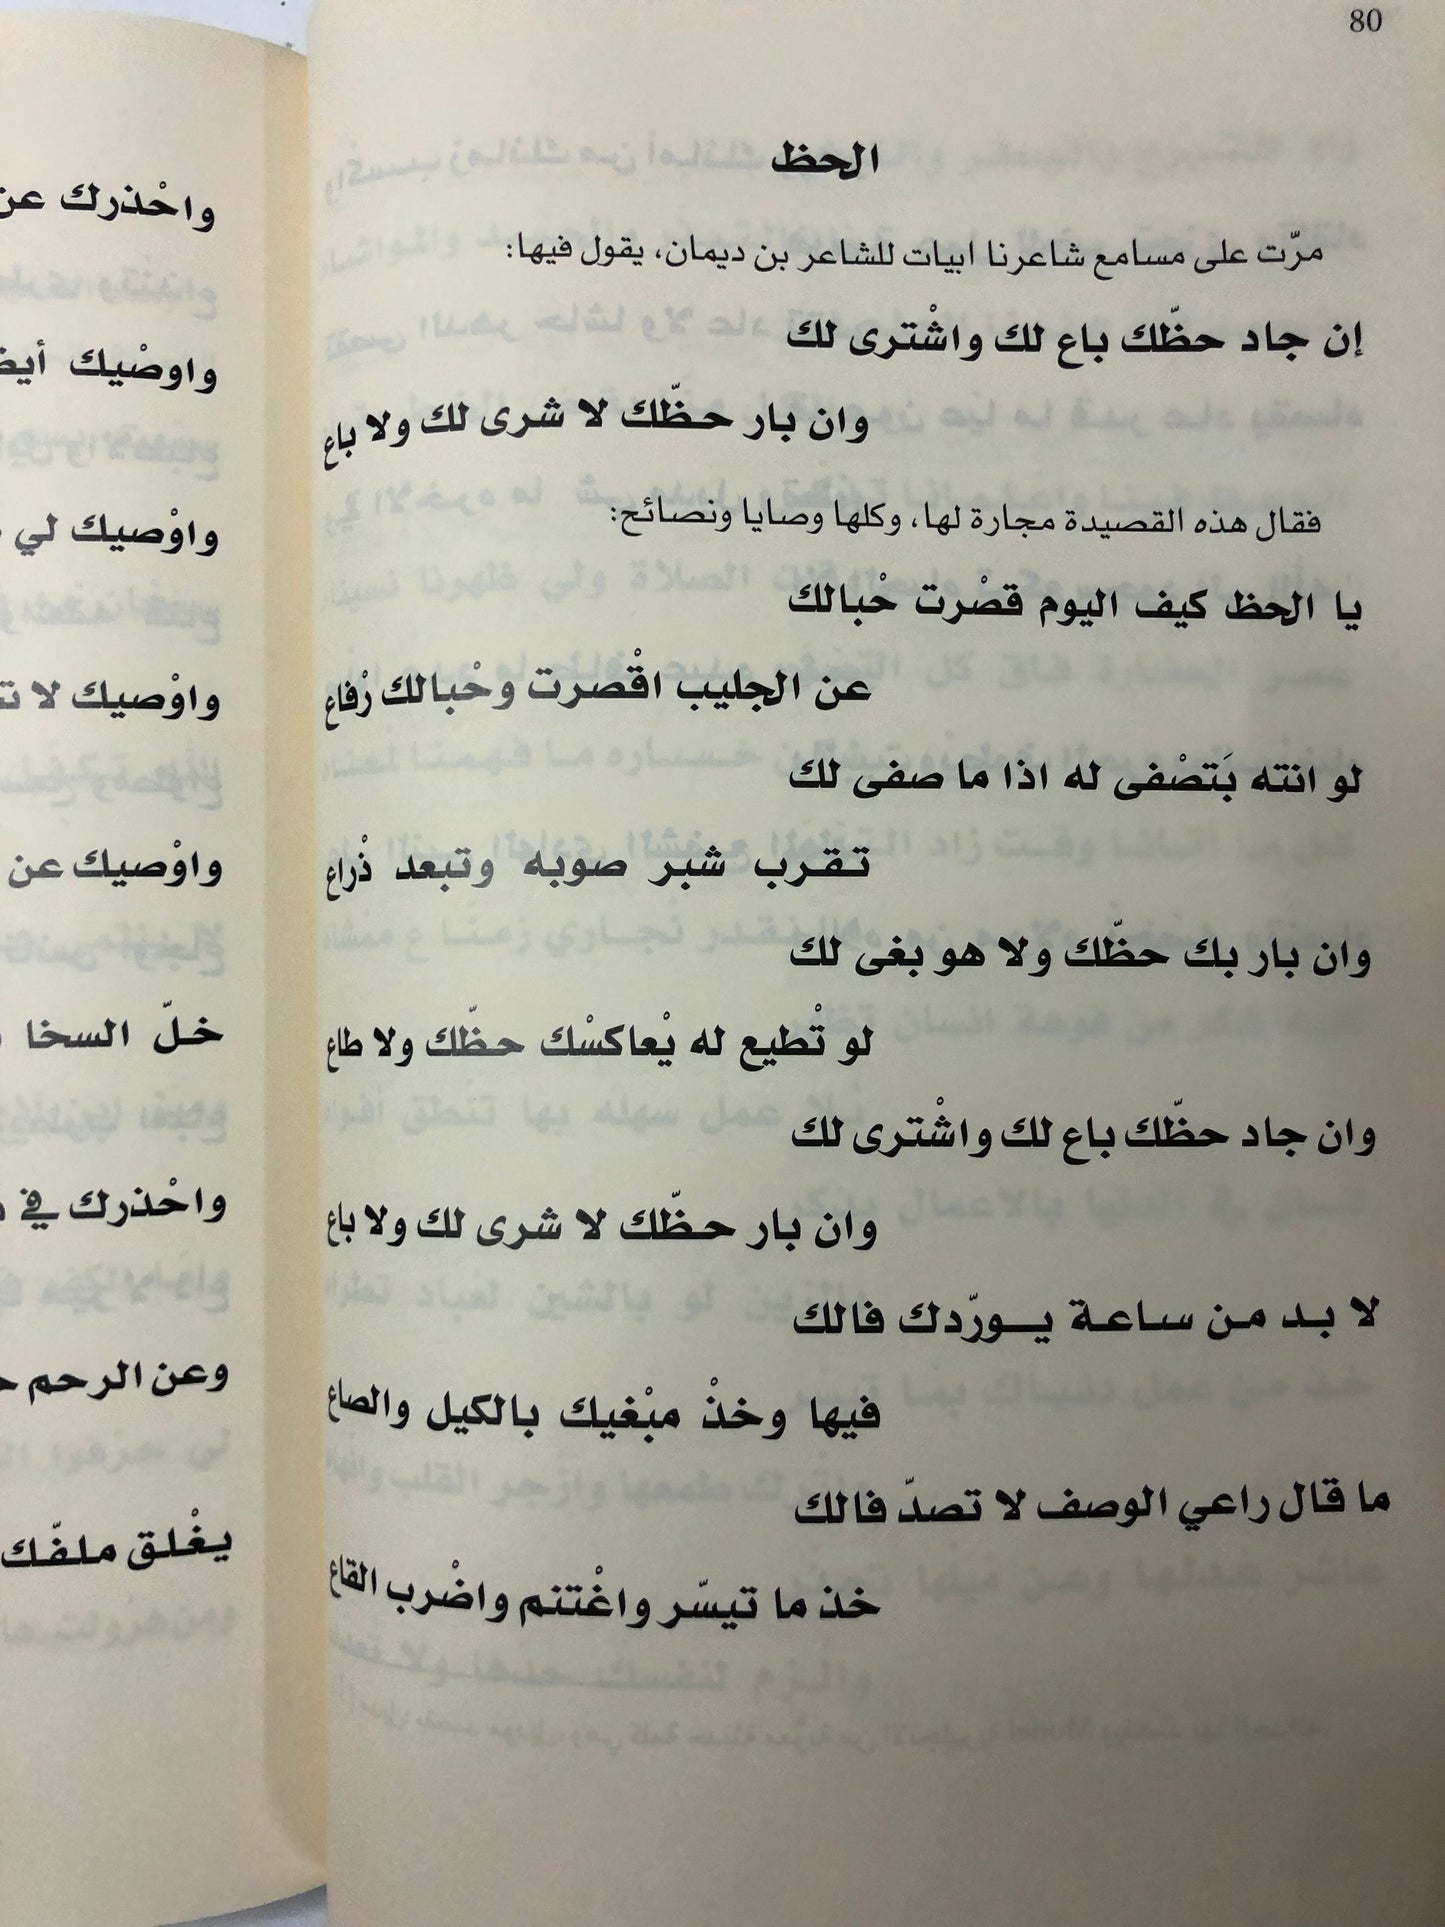 80
الحظ
مرّت على مسامع شاعرنا ابيات للشاعر بن ديمان، يقول فيها:
إن جاد حظّك باع لك واشْترى لك
وان بار حظّك لا شرى لك ولا باع
فقال هذه القصيدة مجارة لها، وكلها وصايا ونصائح:
يا الحظ كيف اليوم قصْرت حْبالك
عن الجليب اقْصرت وحْبالك رْفاع
لو انته بَتصْفى له اذا ما صفى لك
تقرب شبر صوبه وتبعد ذْراع
وان بار بك حظّك ولا هو بغى لك
لو تْطيع له يْعاكسْك حظّك ولا طاع
وان جاد حظّك باع لك واشْترى لك
وان بار حظّك لا شرى لك ولا باع
لا بد من ساعة يورّدك فالك
فيها وخذْ مبْغيك بالكيل والصاع
ما قال راعي الوصف لا تصدّ فالك
خذ ما تيسّر واغْتنم واضْرب القاع
واحْذرك عن
واوصْيك
واوْصيك لي
واوْصيك لا
واوْصيك عن
خلّ السخا
واحْذرك في
وعن الرحم
يغْلق ملفّك